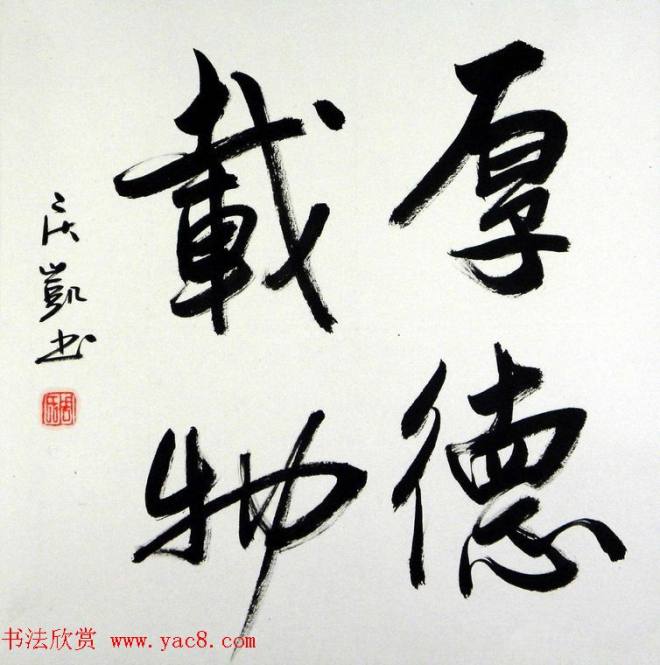 厚德
載物
凯书
书法欣赏 www.yac8.com